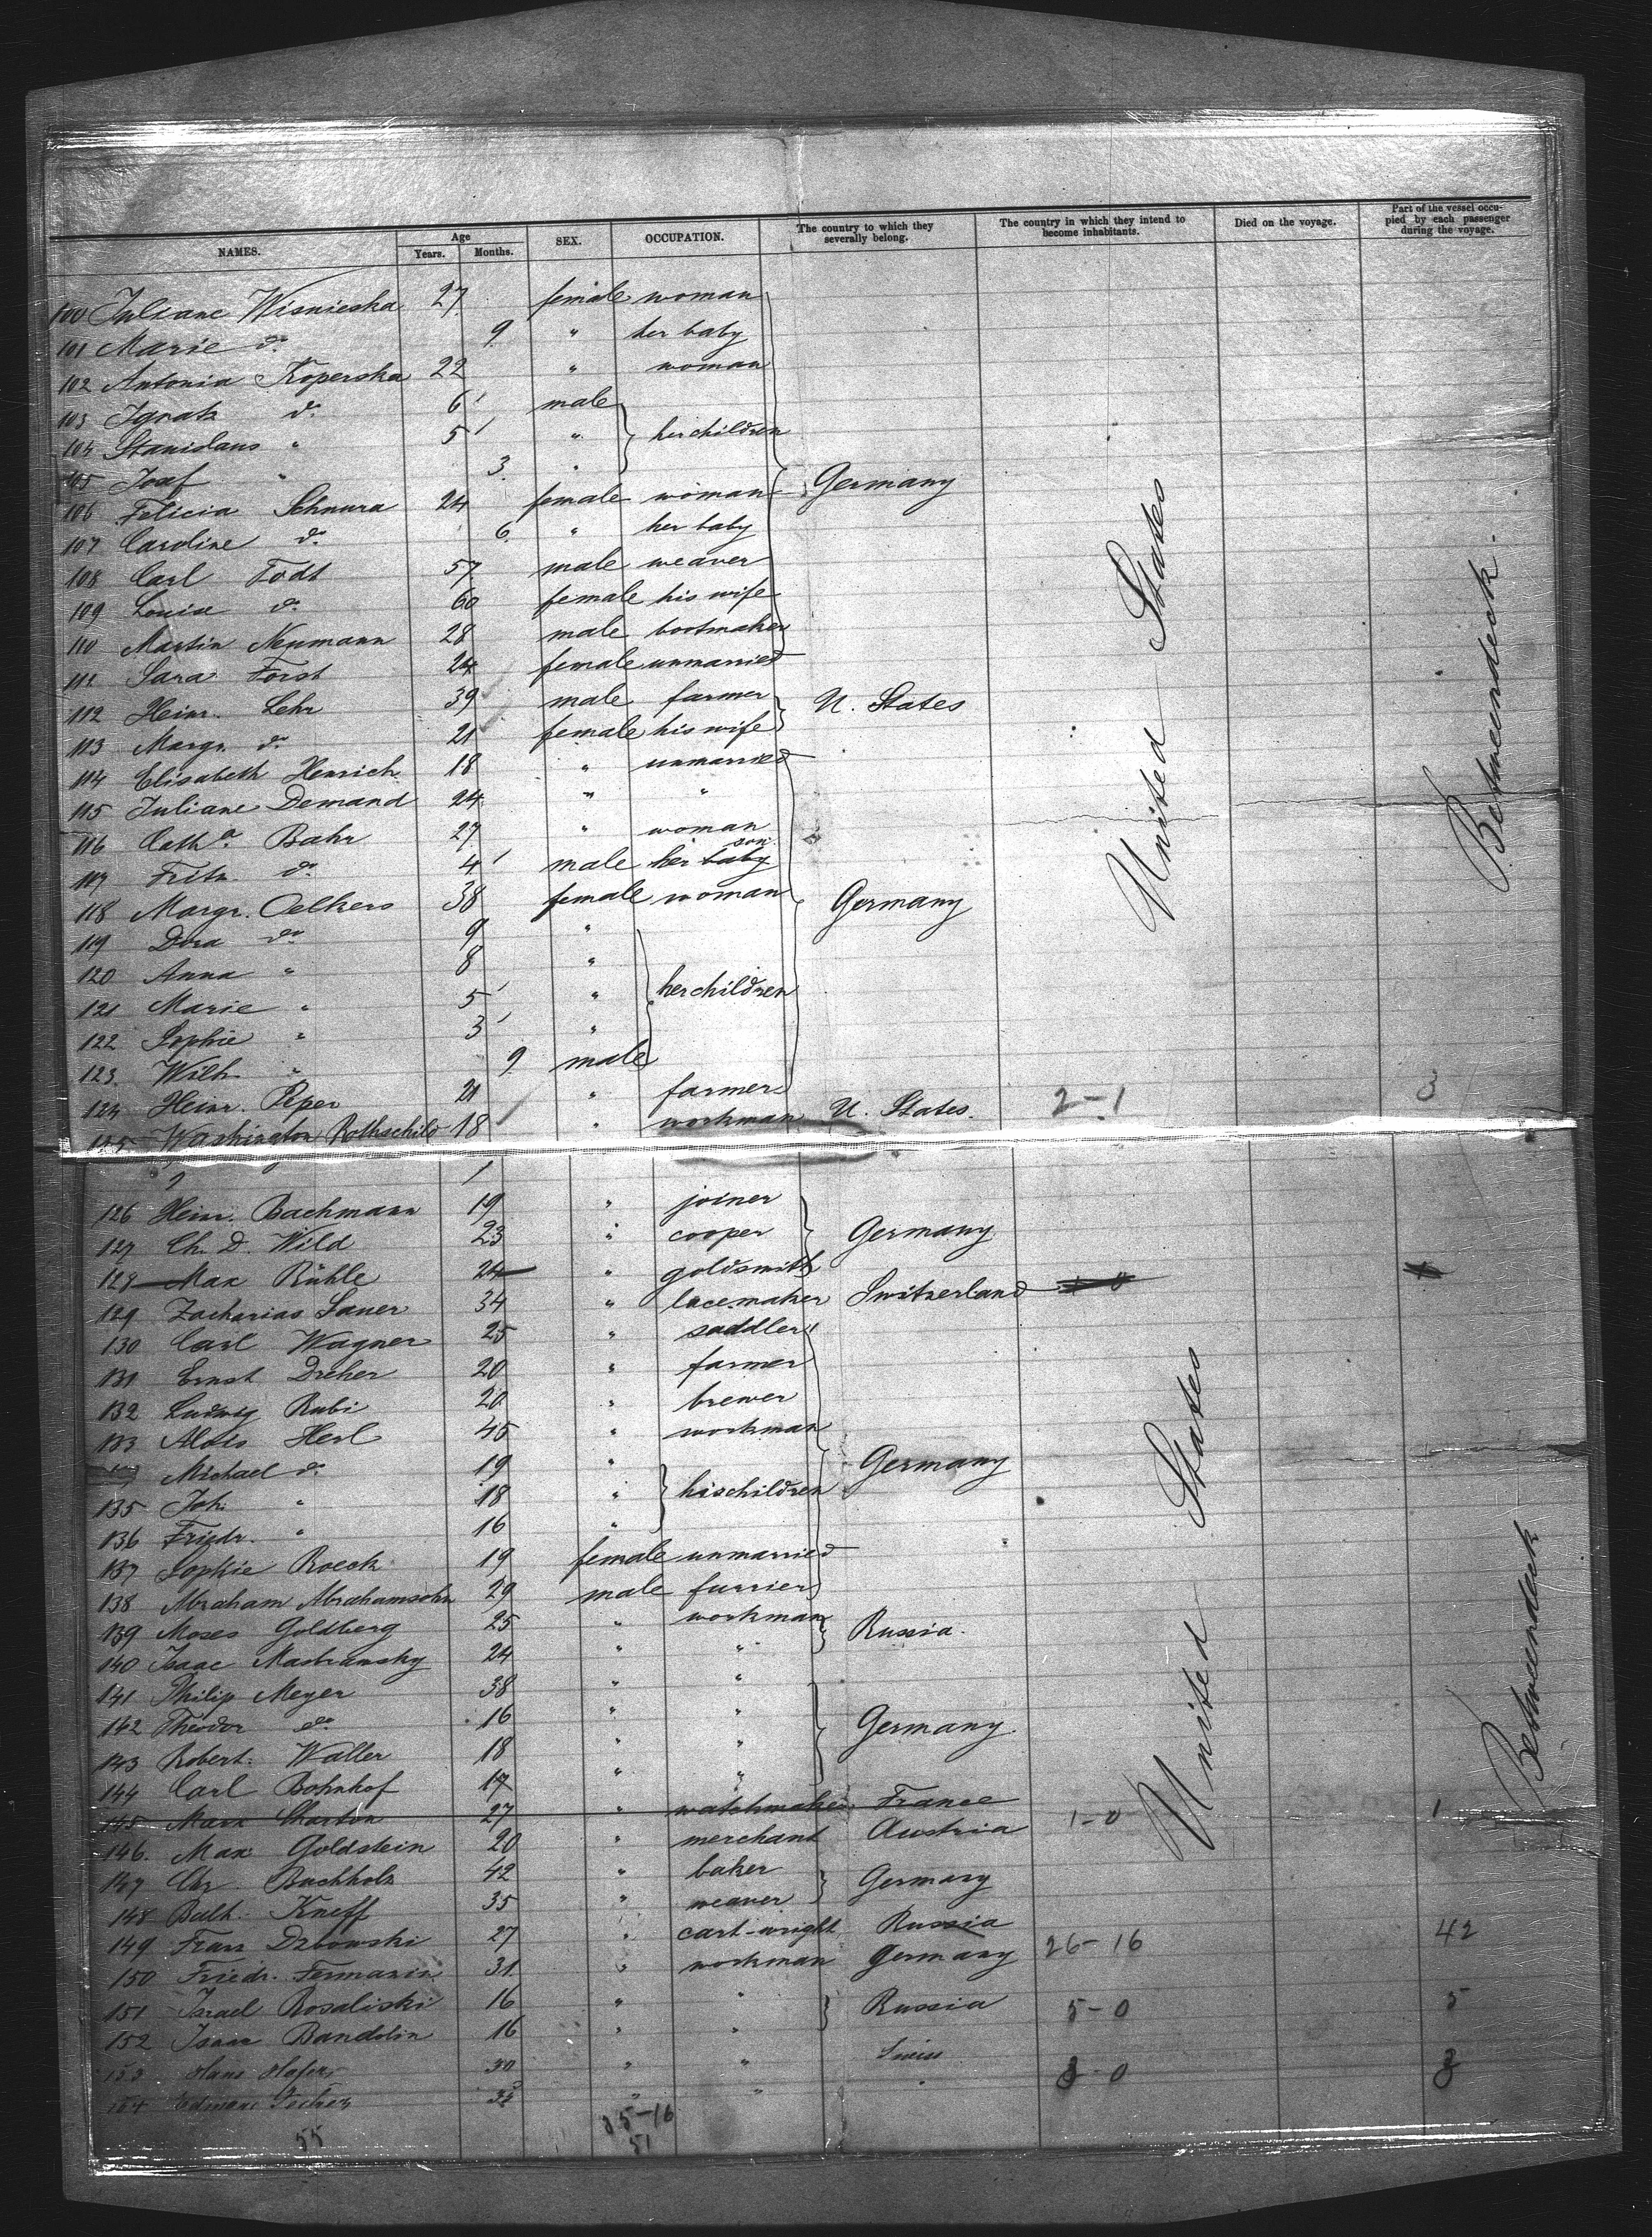 NAMES. Age Years. Months. SEX. OCCUPATION. The country to which they severally belong. The country in which they intend to become inhabitants. Died on the voyage. Part of the vessel occupied by each passenger during the voyage.
100 Juliane Wisnieska 27 female woman
101 Marie do 9 " her baby
102 Antonia Koperska 22 " woman
103 Ignatz do 6 male
104 Stanislaus " 5 " her children
105 Josef " 3 "
106 Felicia Schnura 24 female woman Germany
107 Caroline do 6 " her baby
108 Carl Todt 57 male weaver
109 Louise do 60 female his wife
110 Martin Neumann 28 male bootmaker
111 Sara Forst 24 female unmarried
112 Heinr. Lehr 39 male farmer U. States
113 Margr. do 21 female his wife
114 Elisabeth Henrich 18 " unmarried
115 Juliane Demand 24 " "
116 Cath.a Bahr 27 " woman
117 Fritz do 4 male her baby son
118 Margr. Oelkers 38 female woman Germany
119 Dora do 9 "
120 Anna " 8 "
121 Marie " 5 " her children
122 Sophie " 3 "
123 Wilh. " 9 male
124 Heinr. Piper 21 " farmer
125 Washington Rothschild 18 " workman U. States. 2-1 3
United States
Betweendeck.
126 Heinr. Bachmann 19 " joiner
127 Ch. D. Wild 23 " cooper Germany
128 Max Rühle 24 " goldsmith
129 Zacharias Sauer 34 " lacemaker Switzerland
130 Carl Wagner 25 " saddler
131 Ernst Dreher 20 " farmer
132 Ludwig Rubi 20 " brewer
133 Alois Herl 45 " workman
Michael do 19 " Germany
135 Joh. " 18 " his children
136 Friedr. " 16 "
137 Sophie Roesch 19 female unmarried
138 Abraham Abrahamsohn 29 male furrier
139 Moses Goldberg 25 " workman Russia.
140 Isaac Mastransky 24 " "
141 Philip Meyer 38 " "
142 Theodor do 16 " " Germany
143 Robert Waller 18 " "
144 Carl Bohnhof 17 " "
145 Marx Charton 27 " watchmaker France
146. Max Goldstein 20 " merchant Austria 1-0 1
147 Chr. Buchholz 42 " baker Germany
148 Balth. Kneff 35 " weaver
149 Franz Drbowski 27 " cart-wright Russia
150 Friedr. Fermanin 31 " workman Germany 26-16 42
151 Israel Rosaliski 16 " " Russia 5-0 5
152 Isaac Bandolin 16 " "
153 Hans Hafer 30 " " Swiss
154 " " 3-0 3
United States
Betweendeck
55
35-16
51